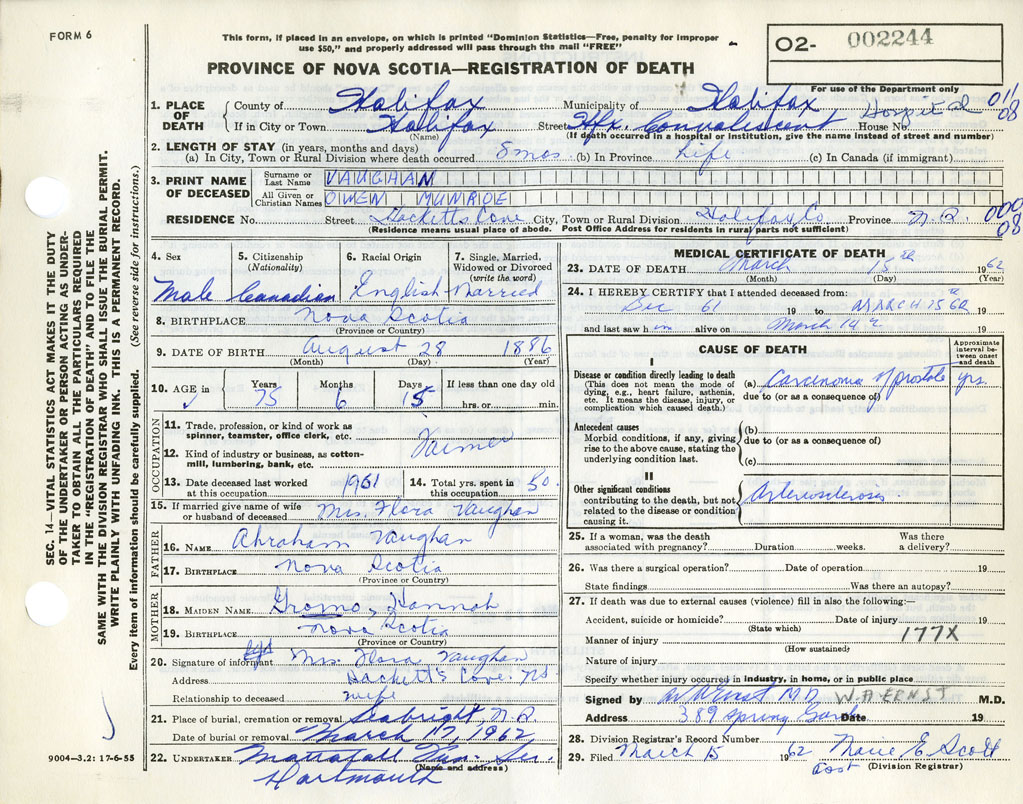 FORM 6
This form, if placed in an envelope, on which is printed "Dominion Statistics—Free, penalty for improper
use $50," and properly addressed will pass through the mail "FREE"
02- 002244
PROVINCE OF NOVA SCOTIA—REGISTRATION OF DEATH
For use of the Department only
1. PLACE OF DEATH County of Halifax Municipality of Halifax 011 08
If in City or Town Halifax Street Hfx Convalescent Hospital House No.
(Name) (If death occurred in a hospital or institution, give the name instead of street and number)
2. LENGTH OF STAY (in years, months and days)
(a) In City, Town or Rural Division where death occurred 8 mos. (b) In Province Life (c) In Canada (if immigrant)
3. PRINT NAME OF DECEASED Surname or Last Name VAUGHAN
All Given or Christian Names OWEN MUNROE
RESIDENCE No. Street Hacketts Cove City, Town or Rural Division Halifax Co Province N.S. 000 08
(Residence means usual place of abode. Post Office Address for residents in rural parts not sufficient)
4. Sex Male
5. Citizenship (Nationality) Canadian
6. Racial Origin English
7. Single, Married, Widowed or Divorced (write the word) Married
8. BIRTHPLACE Nova Scotia
(Province or Country)
9. DATE OF BIRTH August 28 1886
(Month) (Day) (Year)
10. AGE in Years 75 Months 6 Days 15 If less than one day old hrs. or min.
OCCUPATION
11. Trade, profession, or kind of work as spinner, teamster, office clerk, etc.
12. Kind of industry or business, as cotton-mill, lumbering, bank, etc.
13. Date deceased last worked at this occupation 1961 14. Total yrs. spent in this occupation 50
15. If married give name of wife or husband of deceased Mrs. Flora Vaughan
FATHER
16. NAME Abraham Vaughan
17. BIRTHPLACE Nova Scotia
(Province or Country)
MOTHER
18. MAIDEN NAME Hannah
19. BIRTHPLACE Nova Scotia
(Province or Country)
20. Signature of informant Mrs. Flora Vaughan
Address Hackett's Cove NS
Relationship to deceased wife
21. Place of burial, cremation or removal Seabright, N.S.
Date of burial or removal March 17, 1962
22. UNDERTAKER Mattatall
(Name and address)
Dartmouth
MEDICAL CERTIFICATE OF DEATH
23. DATE OF DEATH March 15th 1962
(Month) (Day) (Year)
24. I HEREBY CERTIFY that I attended deceased from:
Dec 61 19 to MARCH 15 62 19
and last saw h im alive on March 14 19
CAUSE OF DEATH
Approximate interval between onset and death
I
Disease or condition directly leading to death (a) Carcinoma of prostate yrs.
(This does not mean the mode of dying, e.g., heart failure, asthenia, etc. It means the disease, injury, or complication which caused death.)
due to (or as a consequence of)
Antecedent causes (b)
Morbid conditions, if any, giving rise to the above cause, stating the underlying condition last.
due to (or as a consequence of)
(c)
II
Other significant conditions Arteriosclerosis
contributing to the death, but not related to the disease or condition causing it.
25. If a woman, was the death associated with pregnancy? Duration weeks. Was there a delivery?
26. Was there a surgical operation? Date of operation 19
State findings Was there an autopsy?
27. If death was due to external causes (violence) fill in also the following:—
Accident, suicide or homicide? Date of injury 19
(State which)
Manner of injury 177X
(How sustained)
Nature of injury
Specify whether injury occurred in industry, in home, or in public place
Signed by W A Ernst M D W. A ERNST M.D.
Address 389 Spring Gard Date 19
28. Division Registrar's Record Number
29. Filed March 15 1962 Marie E. Scott
(Division Registrar)
9004—3.2: 17-6-55
SEC. 14—VITAL STATISTICS ACT MAKES IT THE DUTY
OF THE UNDERTAKER OR PERSON ACTING AS UNDER-
TAKER TO OBTAIN ALL THE PARTICULARS REQUIRED
IN THE "REGISTRATION OF DEATH" AND TO FILE THE
SAME WITH THE DIVISION REGISTRAR WHO SHALL ISSUE THE BURIAL PERMIT.
WRITE PLAINLY WITH UNFADING INK. THIS IS A PERMANENT RECORD.
Every item of information should be carefully supplied. (See reverse side for instructions.)